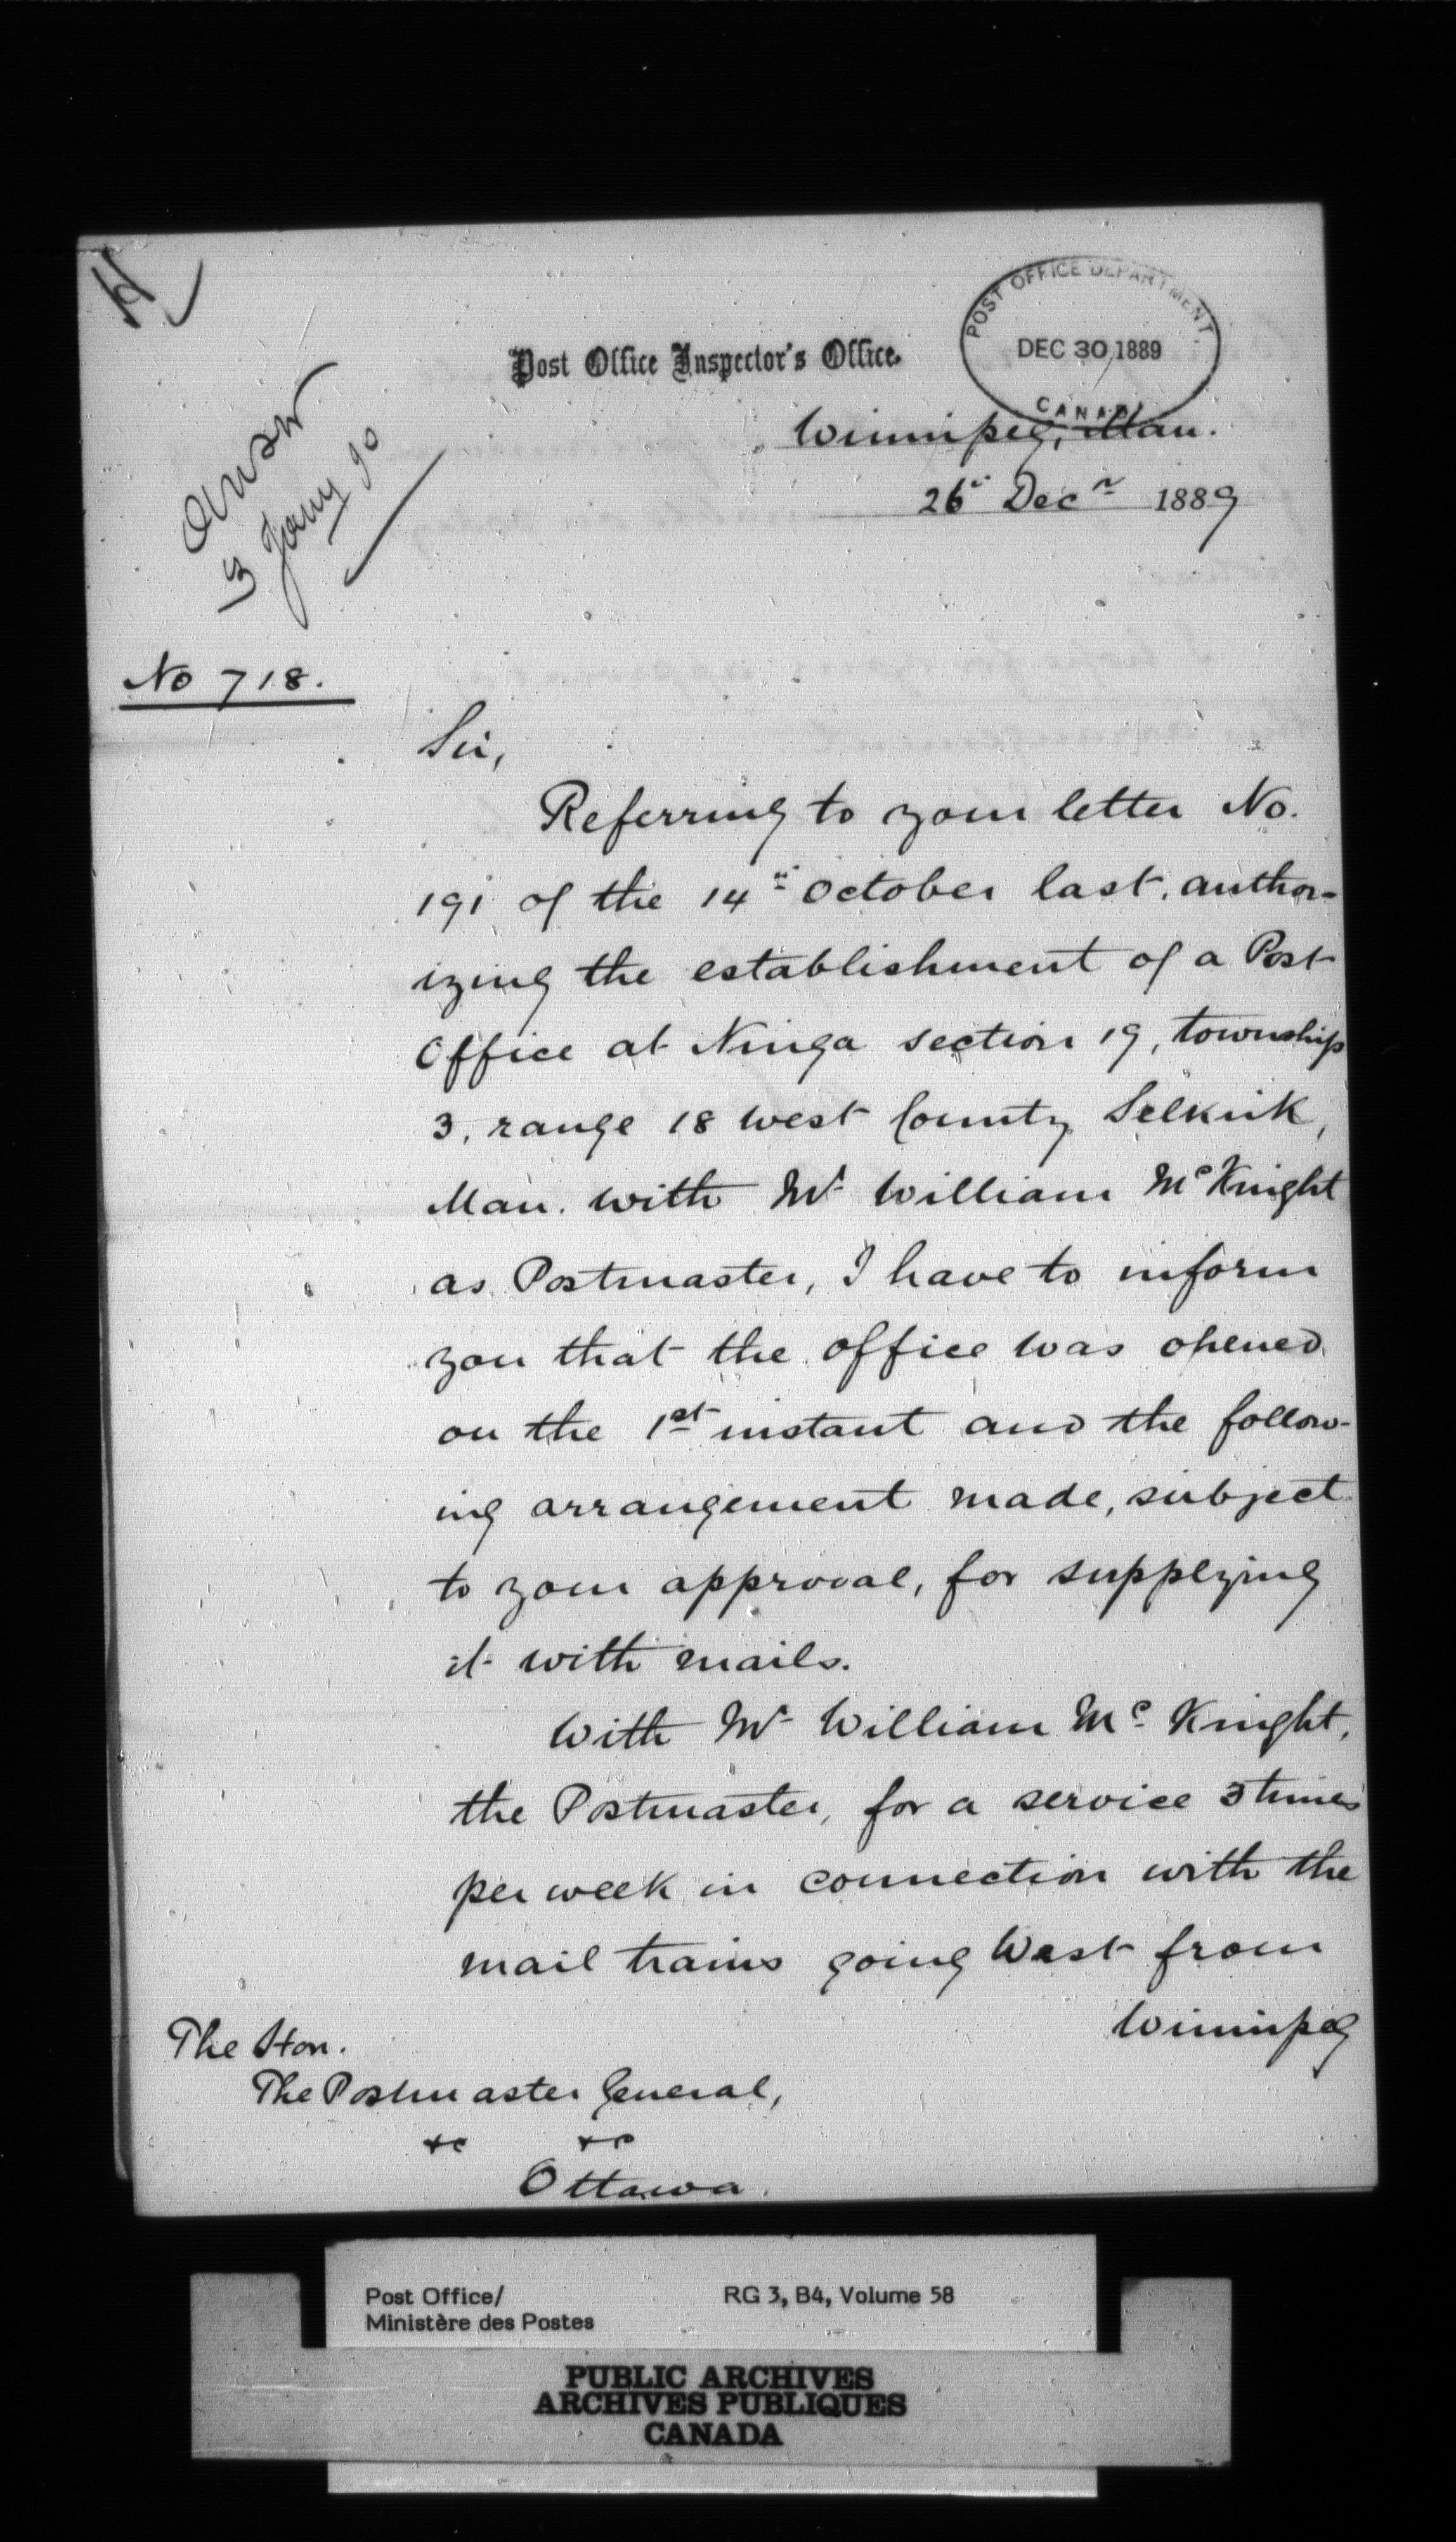 H
POST OFFICE DEPARTMENT,
DEC 30 1889
CANADA
Post Office Inspector's Office.
Winnipeg, Man.
26th Decr 1889
answ
3 Jany 90
No 718.
Sir,
Referring to your letter No.
191 of the 14th October last, author-
izing the establishment of a Post
Office at Ninga section 19, township
3, range 18 west County Selkirk,
Man. with Mr William McKnight
as Postmaster, I have to inform
you that the office was opened
on the 1st instant and the follow-
ing arrangement made, subject
to your approval, for supplying
it with mails.
With Mr William McKnight,
the Postmaster, for a service 3 times
per week in connection with the
mail trains going West from
Winnipeg
The Hon.
The Postmaster General,
&c &c
Ottawa.
Post Office/
Ministère des Postes
RG 3, B4, Volume 58
PUBLIC ARCHIVES
ARCHIVES PUBLIQUES
CANADA